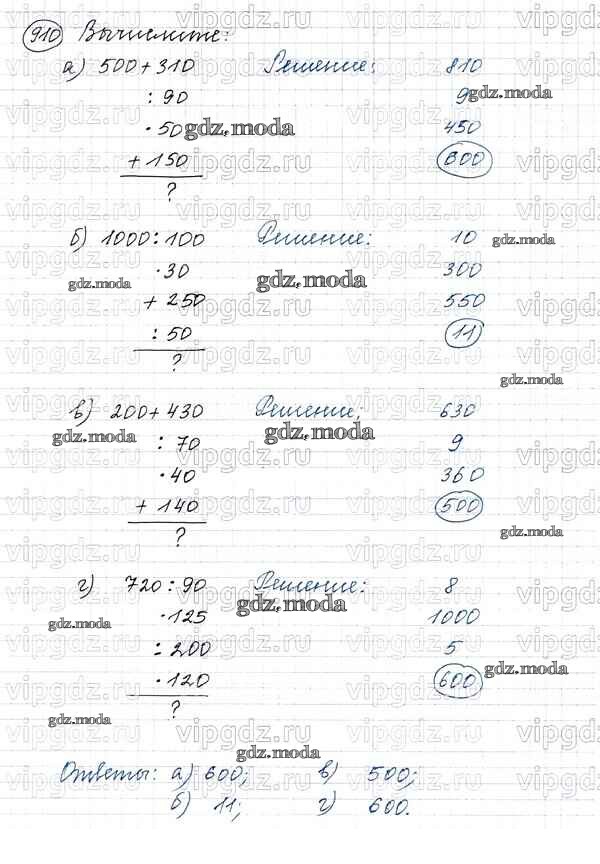 910 Вычислите:
а) 500 + 310 Решение: 810
: 90 9
· 50 450
+ 150 600
?
б) 1000 : 100 Решение: 10
· 30 300
+ 250 550
: 50 11
?
в) 200 + 430 Решение: 630
: 70 9
· 40 360
+ 140 500
?
г) 720 : 90 Решение: 8
· 125 1000
: 200 5
· 120 600
?
Ответы: а) 600; в) 500;
б) 11; г) 600.
vipgdz.ru
gdz.moda